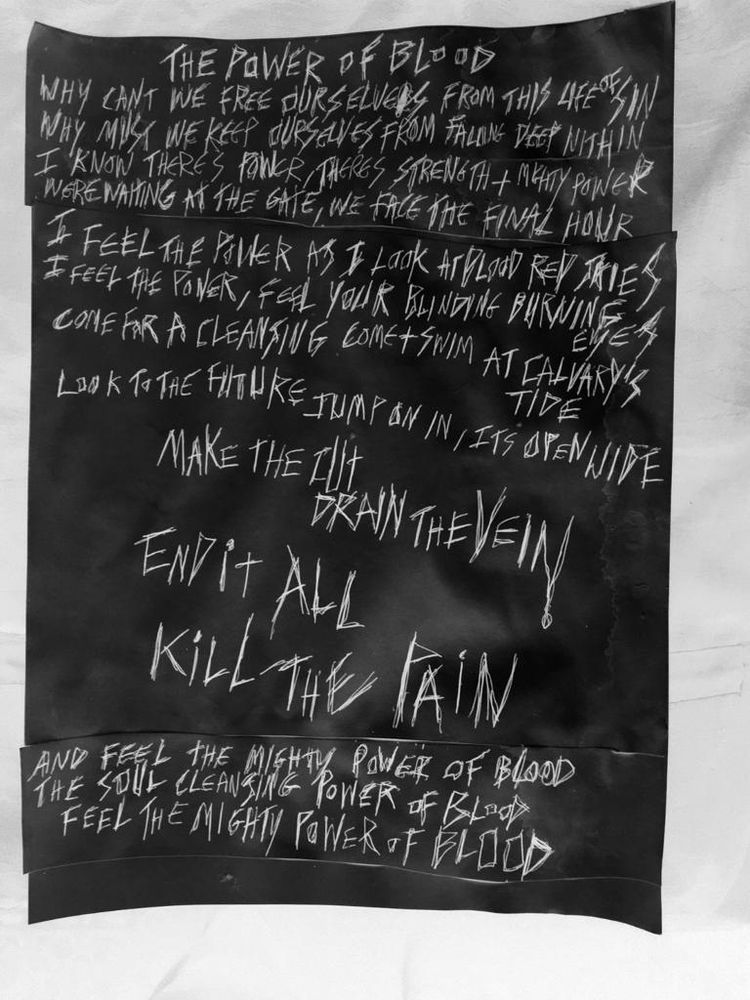 THE POWER OF BLOOD
WHY CANT WE FREE OURSELVES FROM THIS LIFE OF SIN
WHY MUST WE KEEP OURSELVES FROM FALLING DEEP WITHIN
I KNOW THERE'S POWER, THERES STRENGTH + MIGHTY POWER
WERE WAITING AT THE GATE, WE FACE THE FINAL HOUR
I FEEL THE POWER AS I LOOK AT BLOOD RED SKIES
I FEEL THE POWER, FEEL YOUR BLINDING BURNING
EYES
COME FOR A CLEANSING COME + SWIM AT CALVARY'S
TIDE
LOOK TO THE FUTURE JUMP ON IN, ITS OPEN WIDE
MAKE THE CUT
DRAIN THE VEIN!
END it ALL
KiLL THE PAiN
AND FEEL THE MIGHTY POWER OF BLOOD
THE SOUL CLEANSING POWER OF BLOOD
FEEL THE MIGHTY POWER OF BLOOD